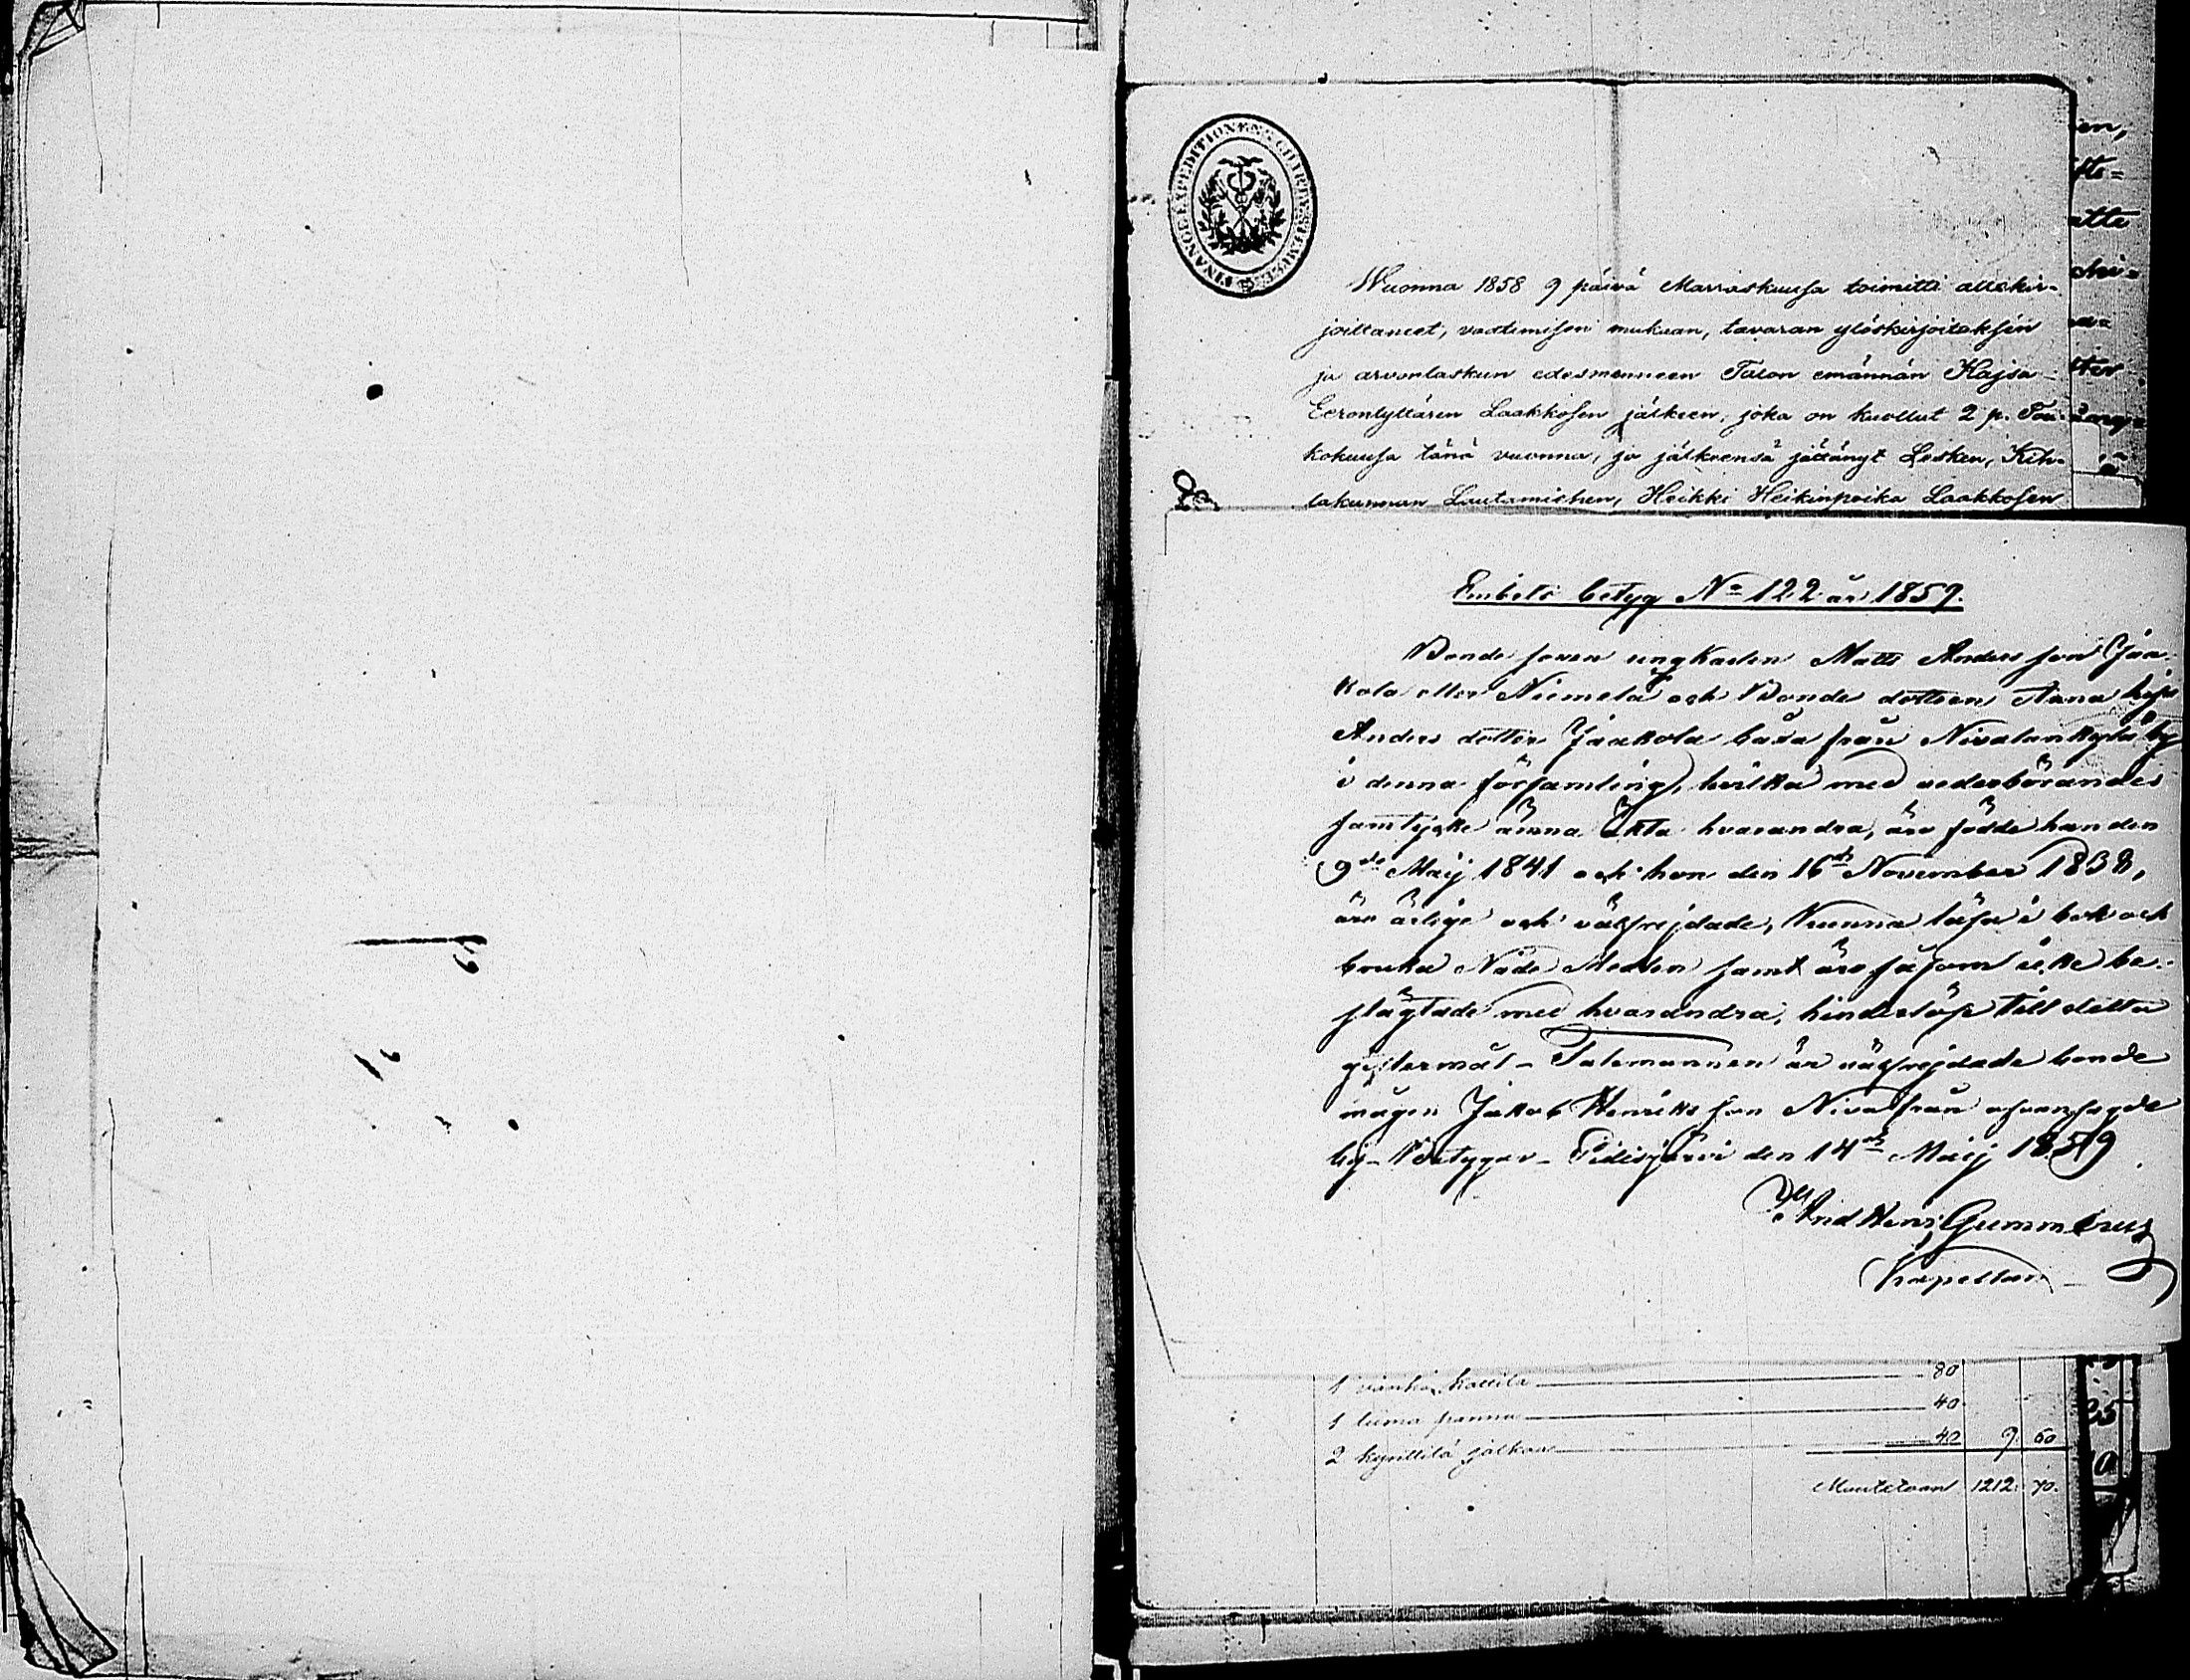 FINANCE EXPEDITIONEN
Wuonna 1858 9 päivä Marraskuusa toimitti allekir-
joittaneet, vaatimisen mukaan, tavaran ylöskirjoitoksen
ja arvonlaskun edesmenneen Talon emännän Kajsa
Eerontyttären Laakkosen jälkeen, joka on kuollut 2 p. Tou-
kokuusa tänä vuonna, ja jälkeensä jättänyt Lesken, Kih-
lakunnan Lautamiehen, Heikki Heikinpoika Laakkosen
Embets betyg No 122 år 1859.
Bonde sonen ungkarlen Matts Andersson Jaa-
kola eller Niemelä och Bonde dottren Anna
Anders dotter Jaakola båda från Nivalankylä by
i denna församling, hvilka med vederbörandes
samtycke ämna äkta hvarandra, äro födde han den
9de Maij 1841 och hon den 16de November 1838,
äro ärlige och välfrejdade, kunna läsa i bok och
bruka Nåde Medlen samt äro såsom icke be-
slägtade med hvarandra, hinderlöse till detta
giftermål - Talemannen är välfrejdade bonde
mågen Jakob Henriksson Niva från ofvansagde
by - Betygar - Pidisjärvi den 14de Maij 1859
And Henr Gummerus
Kapellan
1 vanha kattila 80
1 pannu 40
2 kynttilä jalkaa 40 9. 60
Muutetaan 1212. 70.
en,
atte
25